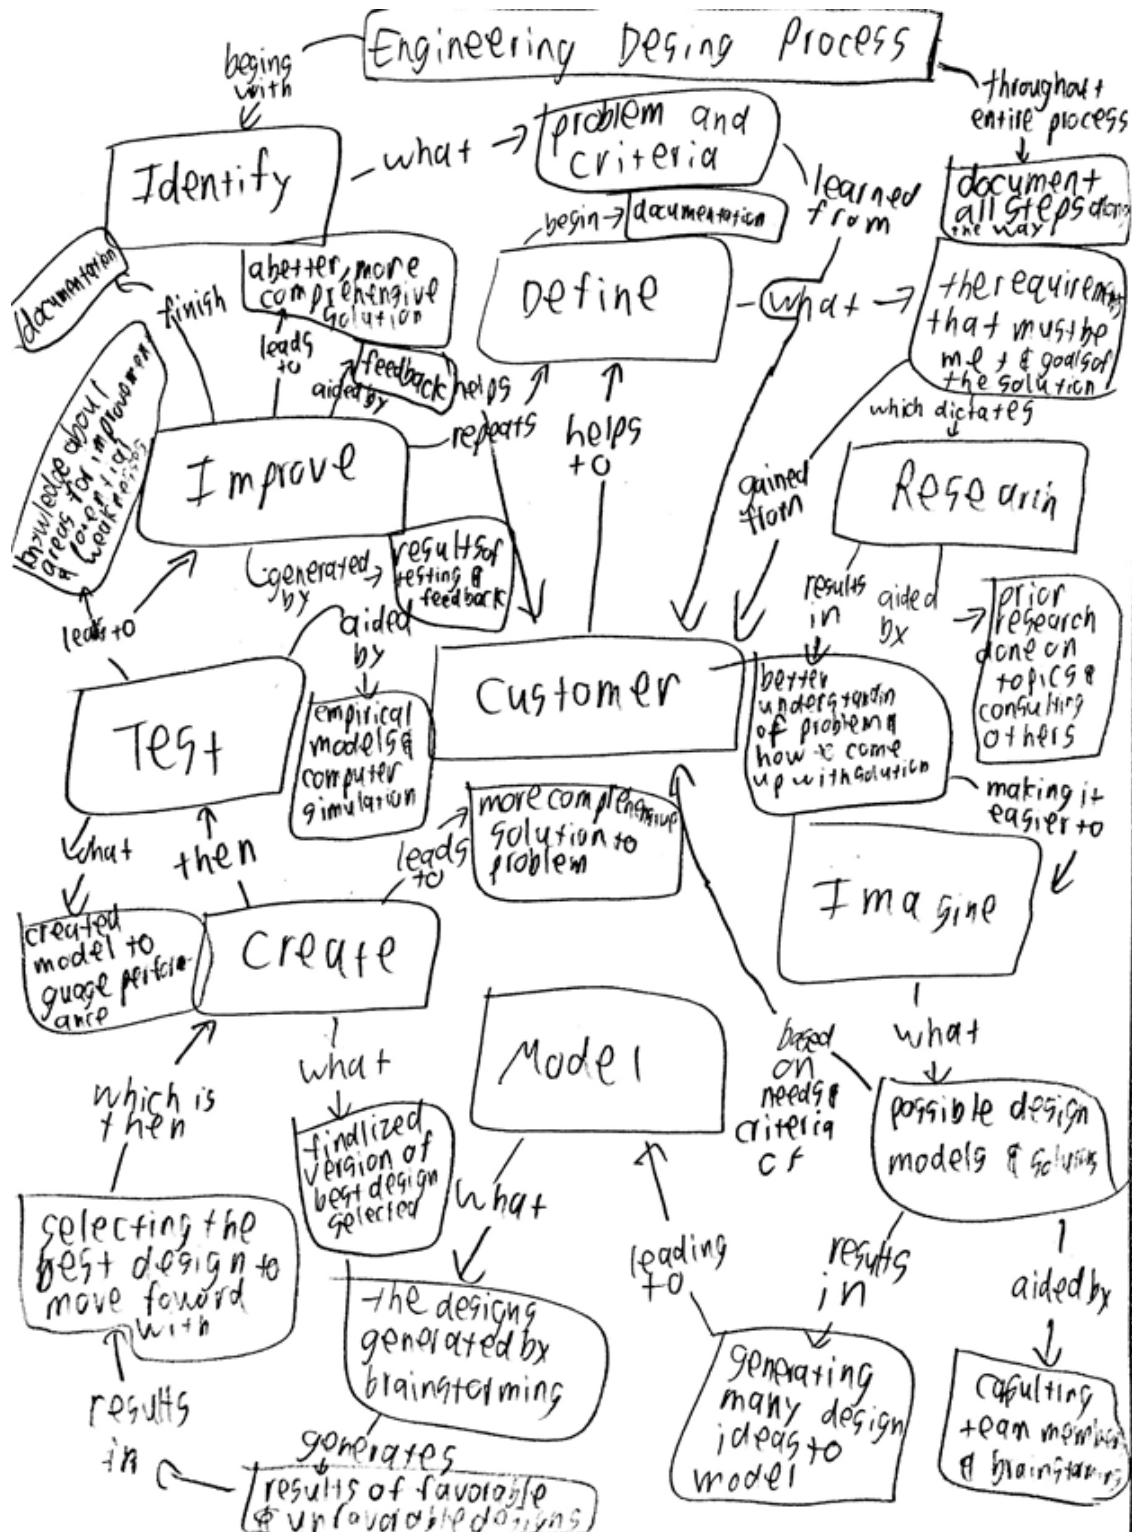 Engineering Desing Process
begins
with
throughout
entire process
Identify
what
problem and
criteria
learned
from
document
all steps along
the way
begin
documentation
Define
what
the requirements
that must be
met & goals of
the solution
documentation
finish
a better, more
comprehensive
solution
leads
to
aided by
feedback
helps
repeats
helps
to
which dictates
Research
gained
from
knowledge about
areas for improvement
& potential
weaknesses
Improve
generated
by
results of
testing &
feedback
results
in
aided
by
prior
research
done on
topics &
consulting
others
leads to
aided
by
Test
empirical
models &
computer
simulation
Customer
better
understandin
of problem &
how to come
up with solution
making it
easier to
what
then
leads
to
more comprehensive
solution to
problem
Imagine
created
model to
guage perform-
ance
Create
what
which is
then
finalized
version of
best design
selected
Model
what
based
on
needs &
criteria
of
what
possible design
models & solutions
selecting the
best design to
move foward
with
leading
to
results
in
aided by
the designs
generated by
brainstorming
generating
many design
ideas to
model
team members
& brainstorming
results
in
generates
results of favorable
& unfavorable designs